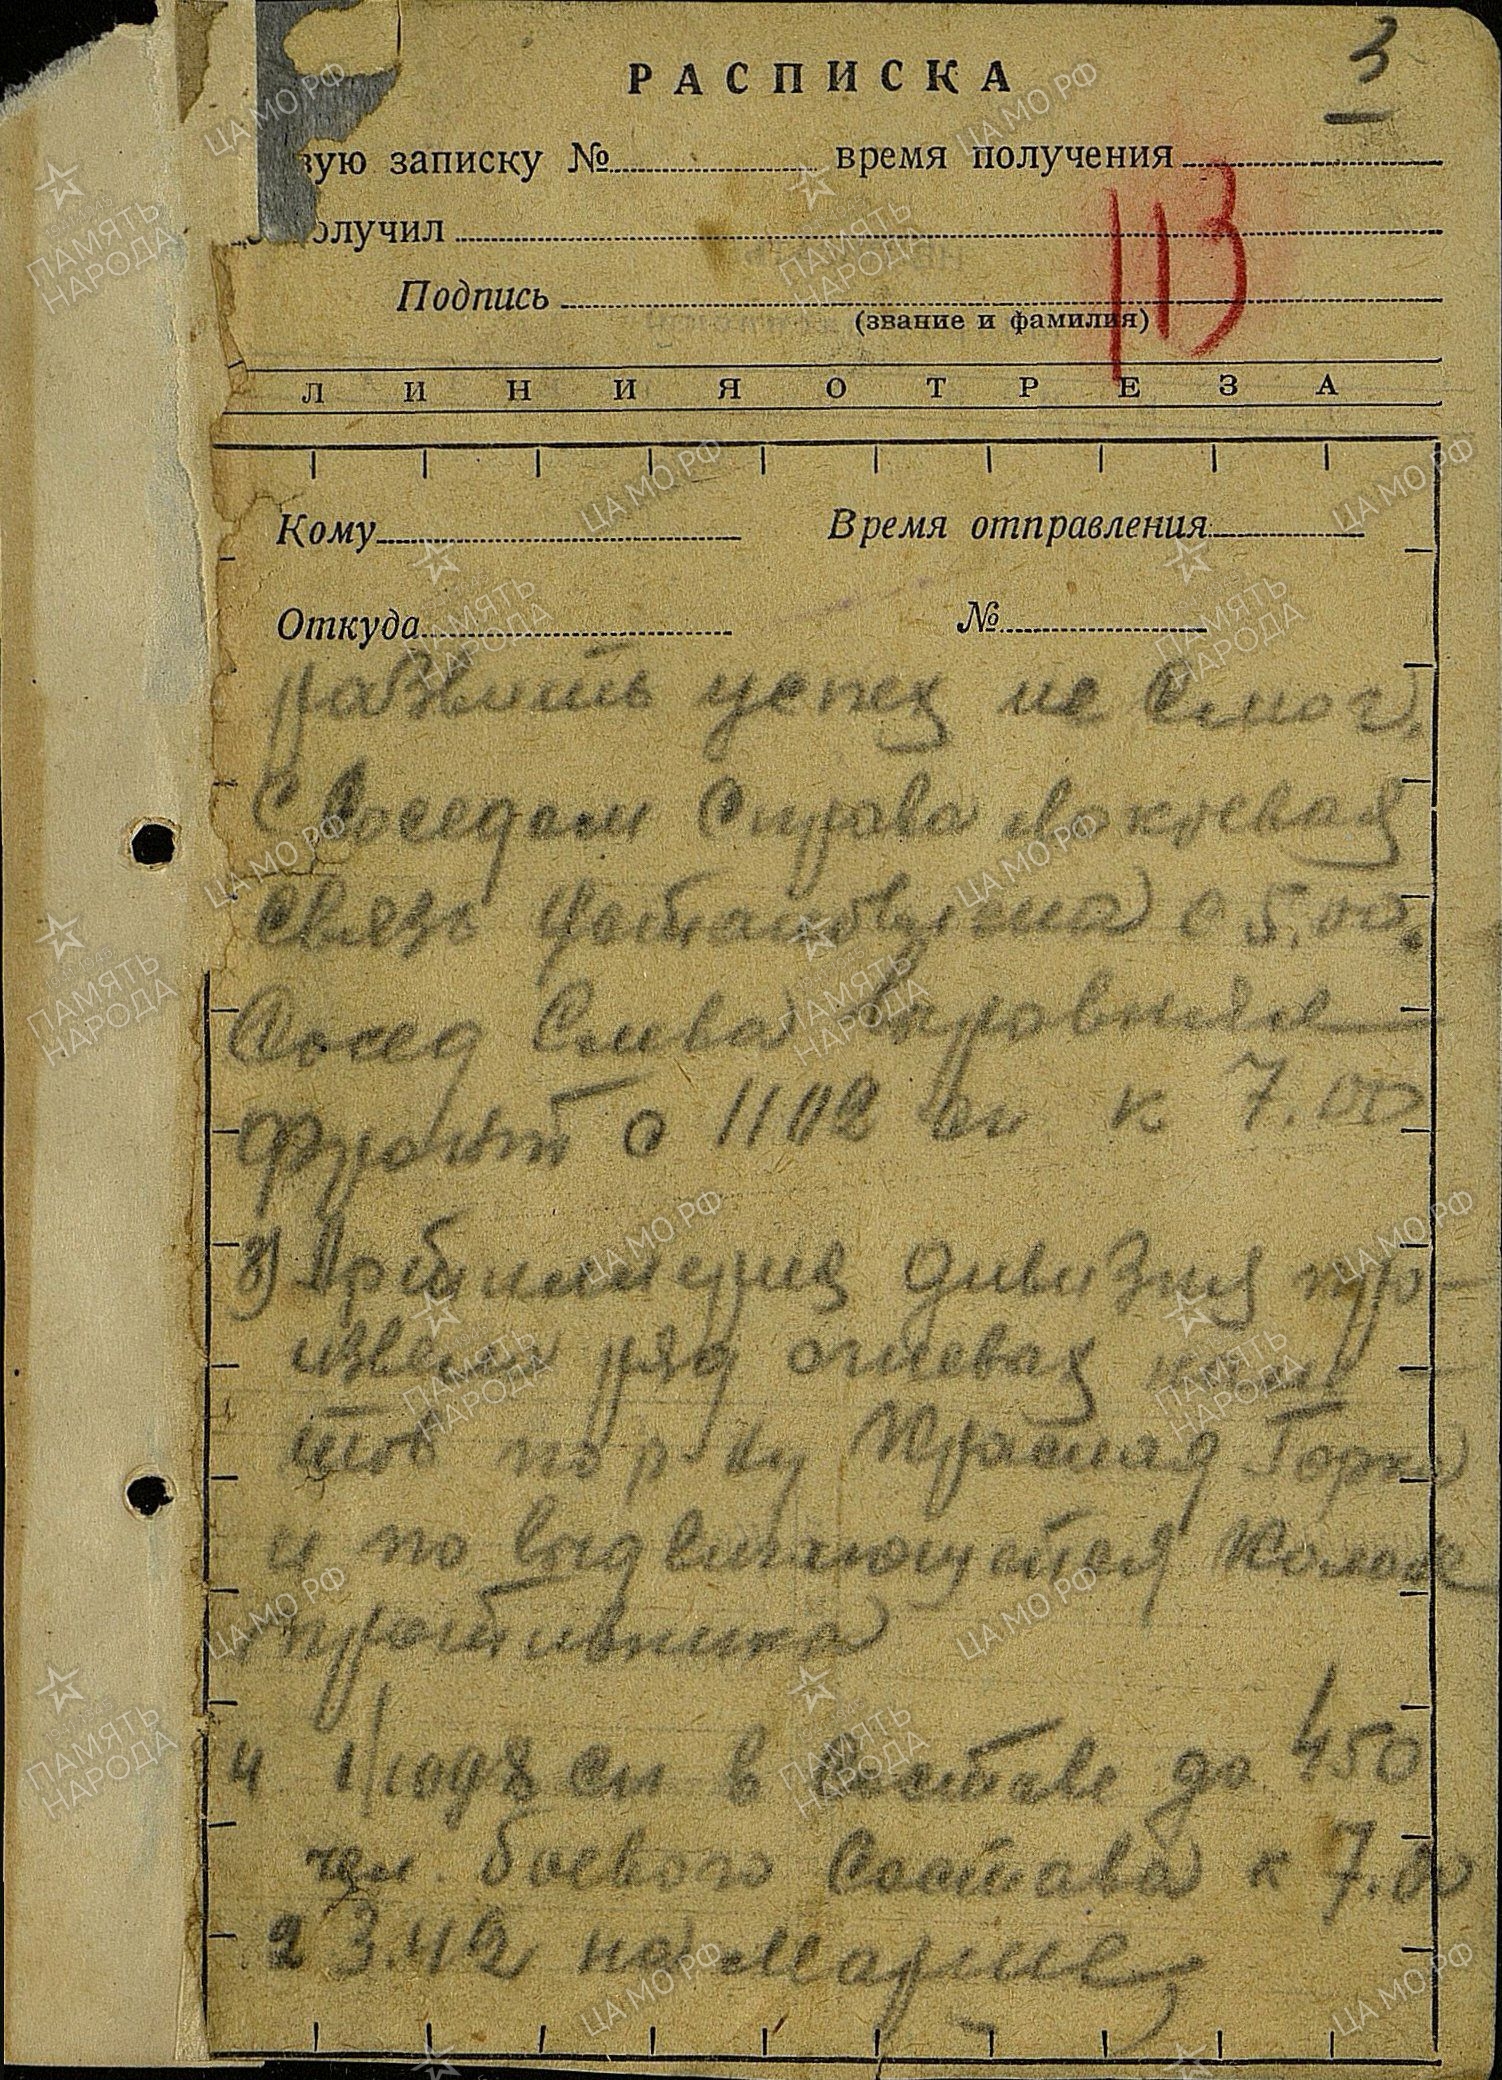 3
РАСПИСКА
вую записку № время получения
олучил
113
Подпись
(звание и фамилия)
ЛИНИЯ ОТРЕЗА
Кому Время отправления
Откуда №
развить успех не смог.
С соседом справа локтевая
связь установлена с 5.00.
Сосед слева выровнял
фронт с 1102 сп к 7.00
3) Артиллерия дивизия про-
извела ряд огневая нале-
тов по р-ну Красная Горка
и по выдвигающейся колоне
противника
4 1/1098 сп в составе до 450
чел. боевого состава к 7.00
2 3.42 на марше,
ЦА МО РФ
ПАМЯТЬ
НАРОДА